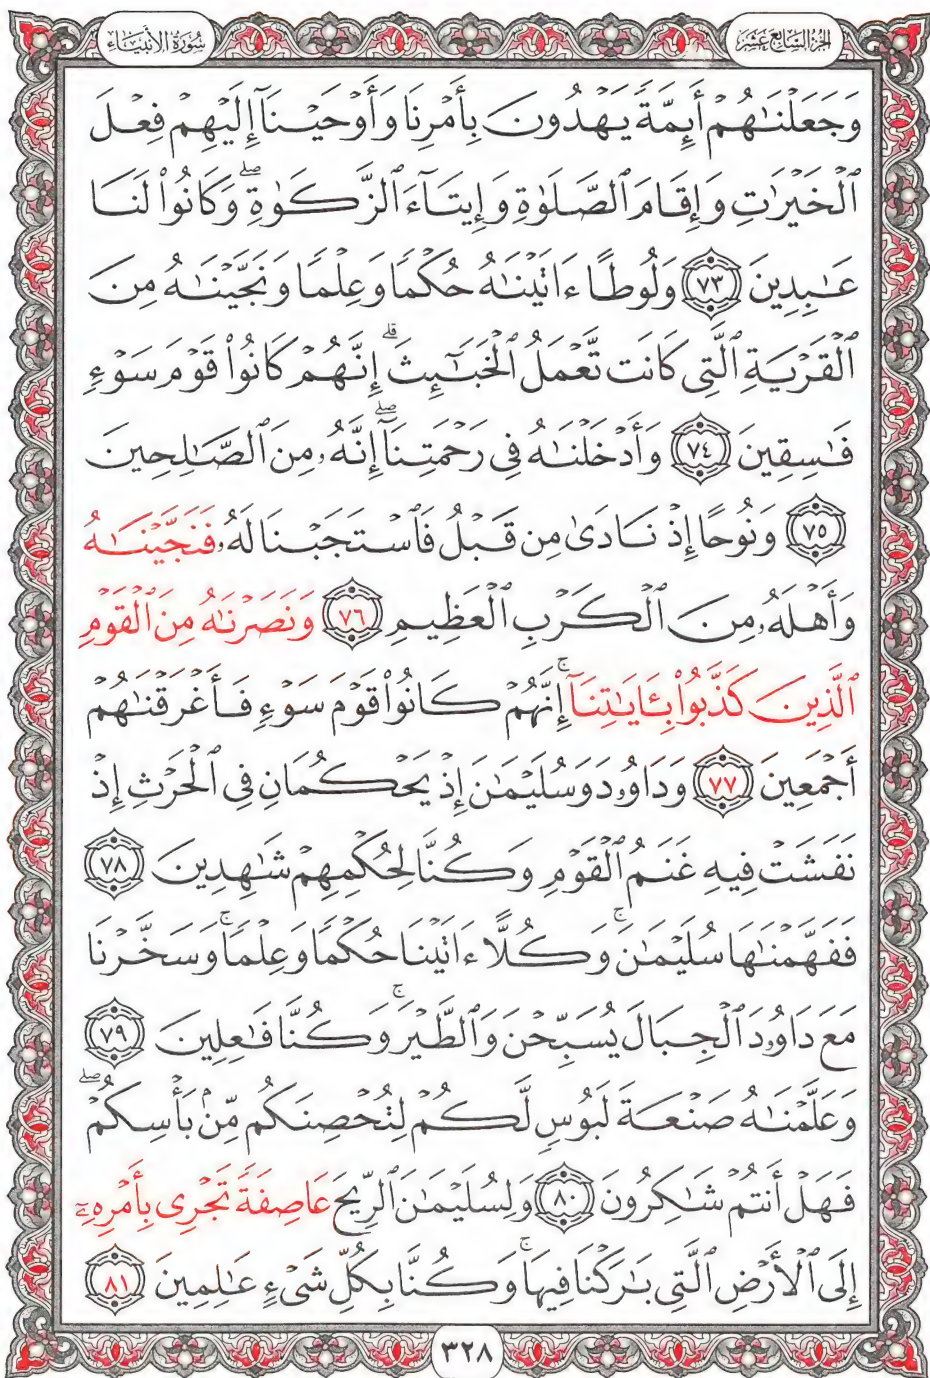 الجزء السابع عشر
سورة الأنبياء
وَجَعَلْنَٰهُمْ أَئِمَّةً يَهْدُونَ بِأَمْرِنَا وَأَوْحَيْنَآ إِلَيْهِمْ فِعْلَ
ٱلْخَيْرَٰتِ وَإِقَامَ ٱلصَّلَوٰةِ وَإِيتَآءَ ٱلزَّكَوٰةِۖ وَكَانُوا۟ لَنَا
عَٰبِدِينَ ٧٣ وَلُوطًا ءَاتَيْنَٰهُ حُكْمًا وَعِلْمًا وَنَجَّيْنَٰهُ مِنَ
ٱلْقَرْيَةِ ٱلَّتِى كَانَت تَّعْمَلُ ٱلْخَبَٰٓئِثَۗ إِنَّهُمْ كَانُوا۟ قَوْمَ سَوْءٍ
فَٰسِقِينَ ٧٤ وَأَدْخَلْنَٰهُ فِى رَحْمَتِنَآۖ إِنَّهُۥ مِنَ ٱلصَّٰلِحِينَ
٧٥ وَنُوحًا إِذْ نَادَىٰ مِن قَبْلُ فَٱسْتَجَبْنَا لَهُۥ فَنَجَّيْنَٰهُ
وَأَهْلَهُۥ مِنَ ٱلْكَرْبِ ٱلْعَظِيمِ ٧٦ وَنَصَرْنَٰهُ مِنَ ٱلْقَوْمِ
ٱلَّذِينَ كَذَّبُوا۟ بِـَٔايَٰتِنَآۚ إِنَّهُمْ كَانُوا۟ قَوْمَ سَوْءٍ فَأَغْرَقْنَٰهُمْ
أَجْمَعِينَ ٧٧ وَدَاوُۥدَ وَسُلَيْمَٰنَ إِذْ يَحْكُمَانِ فِى ٱلْحَرْثِ إِذْ
نَفَشَتْ فِيهِ غَنَمُ ٱلْقَوْمِ وَكُنَّا لِحُكْمِهِمْ شَٰهِدِينَ ٧٨
فَفَهَّمْنَٰهَا سُلَيْمَٰنَۚ وَكُلًّا ءَاتَيْنَا حُكْمًا وَعِلْمًاۚ وَسَخَّرْنَا
مَعَ دَاوُۥدَ ٱلْجِبَالَ يُسَبِّحْنَ وَٱلطَّيْرَۚ وَكُنَّا فَٰعِلِينَ ٧٩
وَعَلَّمْنَٰهُ صَنْعَةَ لَبُوسٍ لَّكُمْ لِتُحْصِنَكُم مِّنۢ بَأْسِكُمْۖ
فَهَلْ أَنتُمْ شَٰكِرُونَ ٨٠ وَلِسُلَيْمَٰنَ ٱلرِّيحَ عَاصِفَةً تَجْرِى بِأَمْرِهِۦٓ
إِلَى ٱلْأَرْضِ ٱلَّتِى بَٰرَكْنَا فِيهَاۚ وَكُنَّا بِكُلِّ شَىْءٍ عَٰلِمِينَ ٨١
٣٢٨